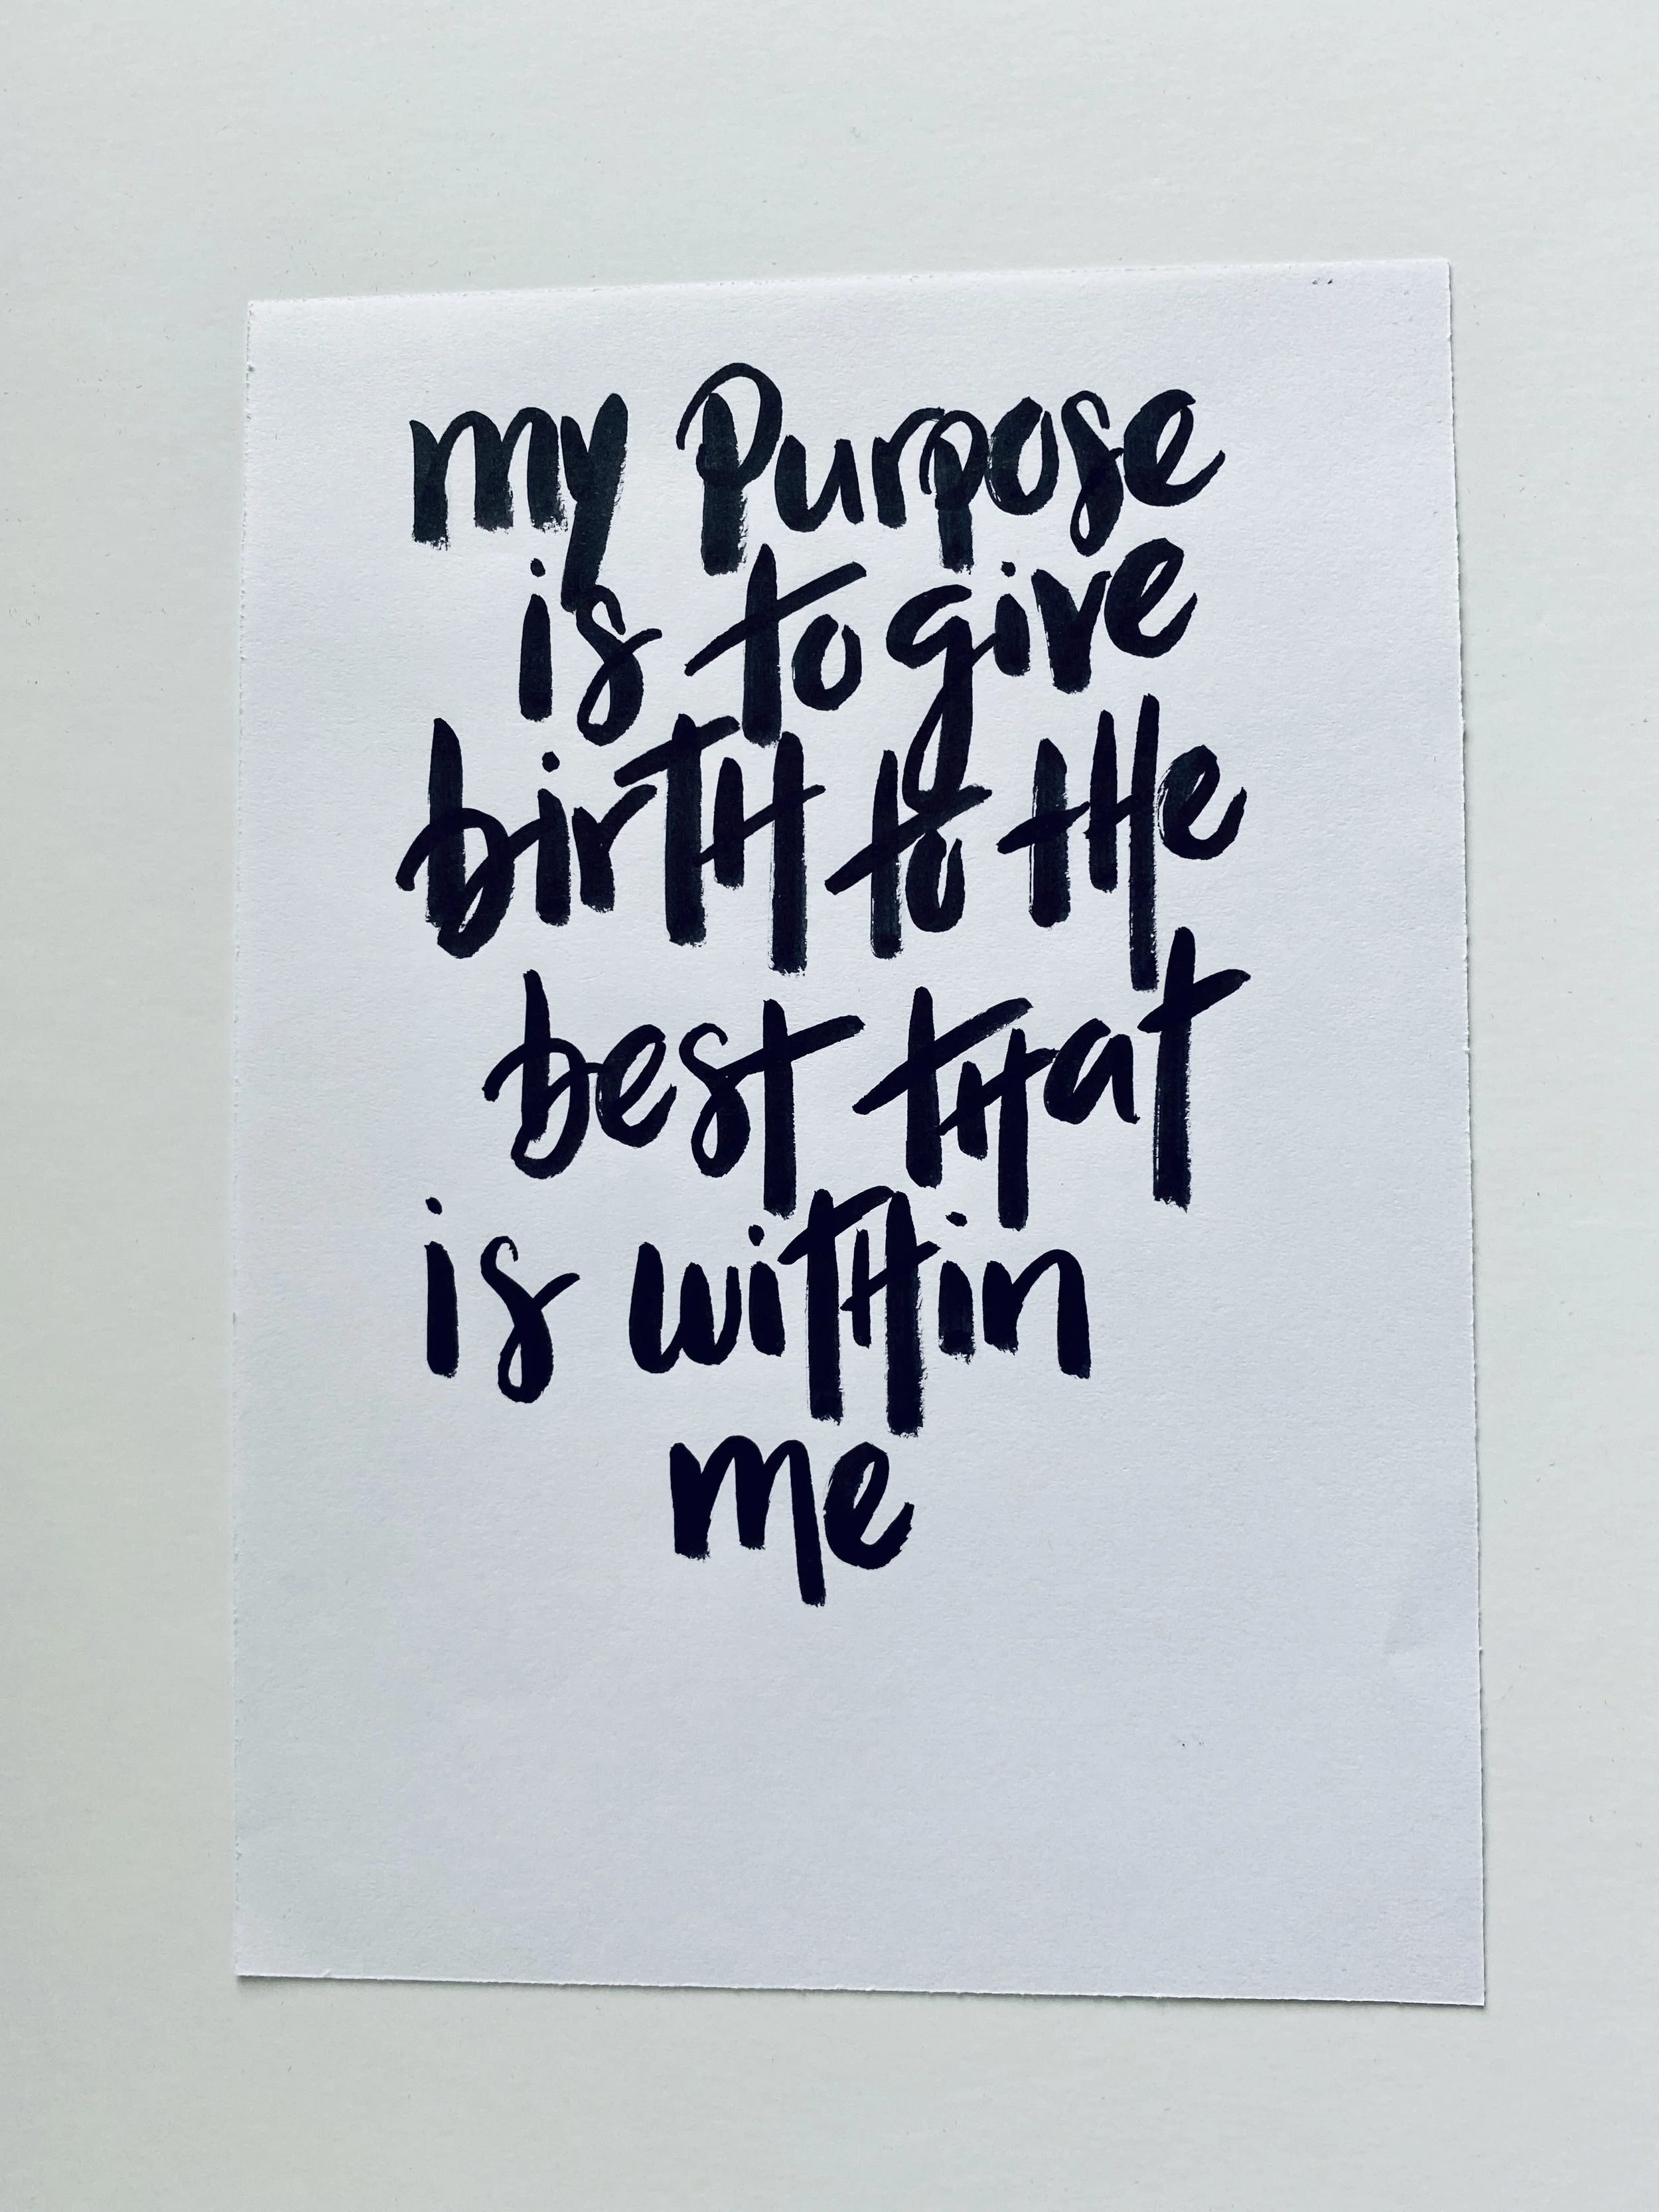 my Purpose
is to give
birth to the
best that
is within
me